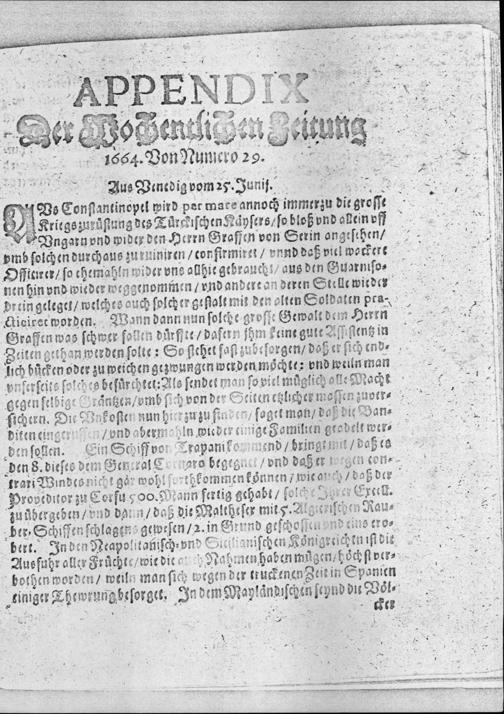 APPENDIX
Der Wochentlichen Zeitung
1664. Von Numero 29.
Aus Venedig vom 25. Junij.
AVs Constantinopel wird per mare annoch immerzu die grosse
Kriegszurüstung des Türckischen Käysers / so bloß vnd allein vff
Vngarn vnd wider den Herrn Graffen von Serin angesehen /
vmb solchen durchaus zu ruiniren / confirmiret / vnnd daß viel wackere
Officirer / so ehemahln wider vns allhie gebraucht / aus den Guarniso-
nen hin vnd wieder weggenommen / vnd andere an deren Stelle wieder
drein geleget / welches auch solcher gestalt mit den alten Soldaten pra-
cticiret worden. Wann dann nun solche grosse Gewalt dem Herrn
Graffen was schwer fallen dürffte / dafern jhm keine gute Assistentz in
Zeiten gethan werden solte: So stehet fast zubesorgen / daß er sich end-
lich bücken oder zu weichen gezwungen werden möchte: vnd weiln man
vnserseits solches befürchtet: Als sendet man so viel müglich alle Macht
gegen selbige Gräntzen / vmb sich von der Seiten etzlicher massen zuver-
sichern. Die Vnkosten nun hierzu zu finden / saget man / daß die Ban-
diten eingeruffen / vnd abermahln wieder einige Familien geadelt wer-
den sollen. Ein Schiff von Trapani kommend / bringt mit / daß es
den 8. dieses dem General Cornaro begegnet / vnd daß er wegen con-
trari Windes nicht gar wohl forthkommen können / wie auch / daß der
Proveditor zu Corfu 500. Mann fertig gehabt / solche Ihrer Excell.
zu übergeben / vnd dann / daß die Maltheser mit 5. Algierischen Rau-
ber-Schiffen schlagens gewesen / 2. in Grund geschossen vnd eins ero-
bert. In den Neapolitanisch- vnd Sicilianischen Königreichen ist die
Ausfuhr aller Früchte / wie die auch Nahmen haben mügen / höchst ver-
bothen worden / weiln man sich wegen der truckenen Zeit in Spanien
einiger Thewrung besorget. In dem Mayländischen seynd die Völ-
cker